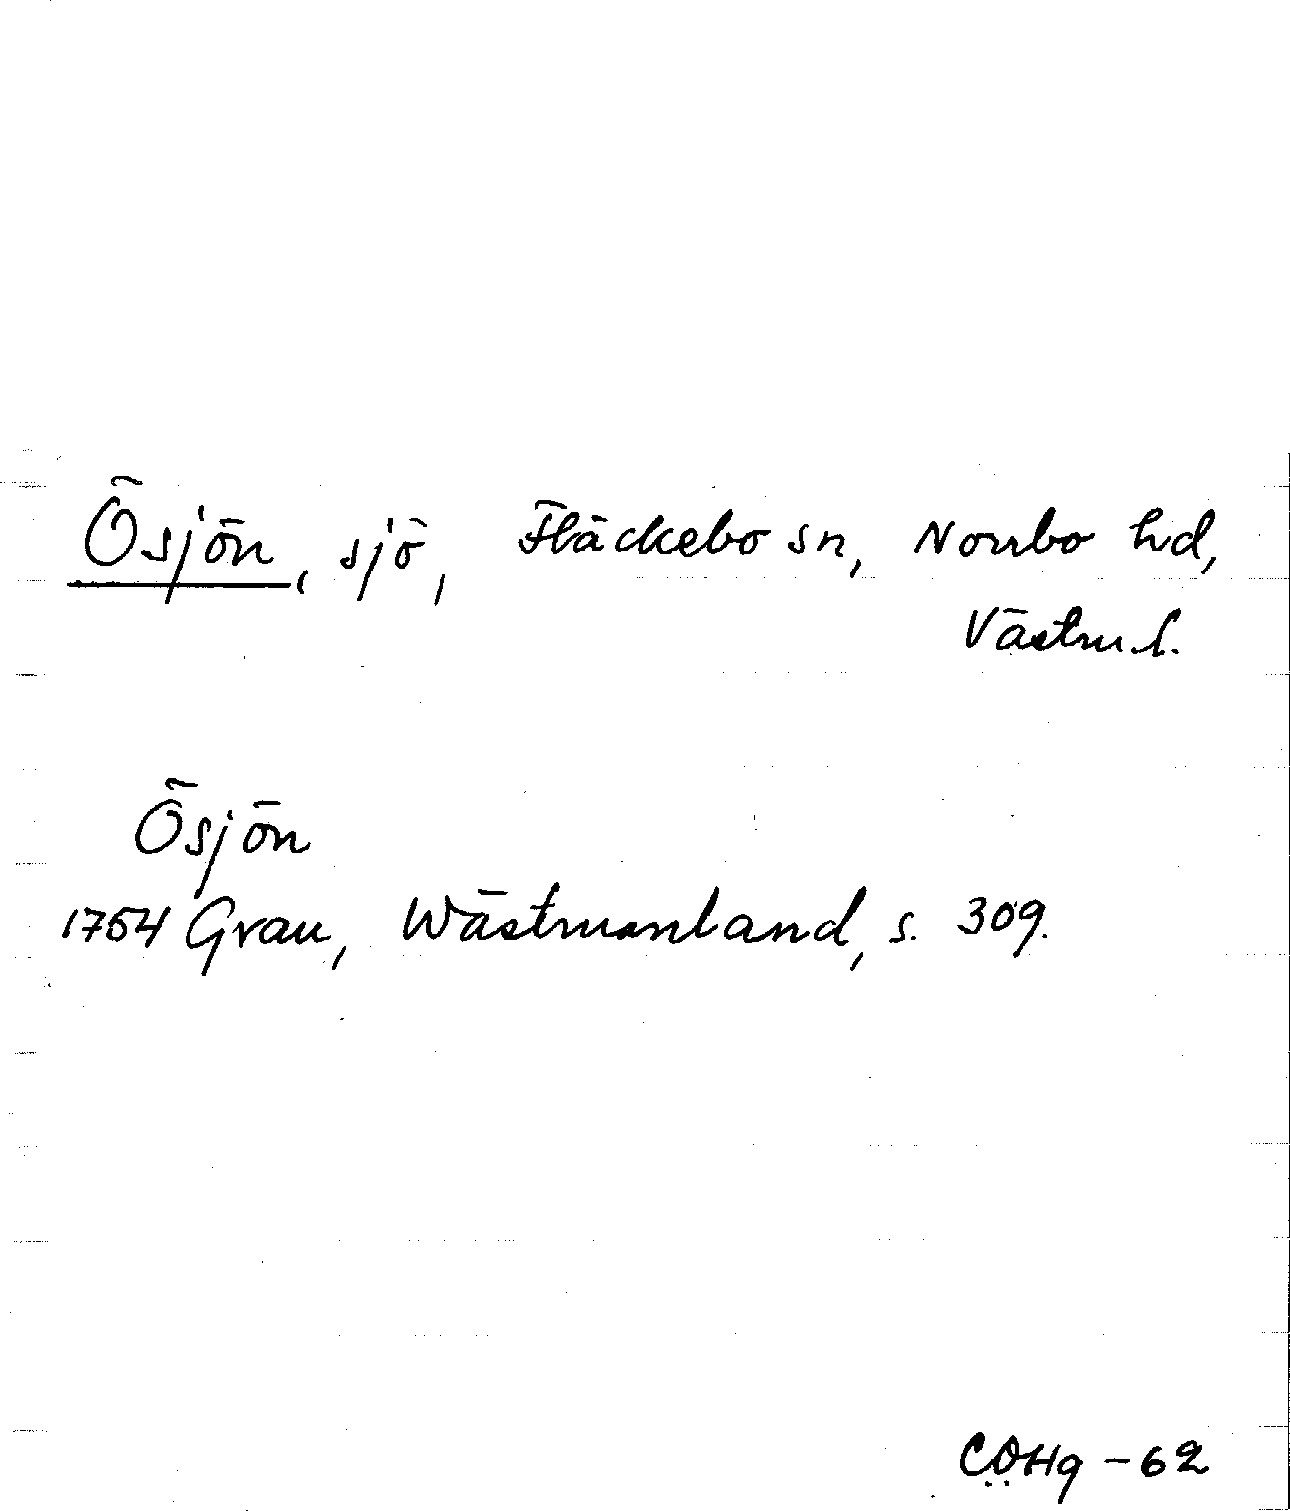 Ösjön, sjö, Fläckebo sn, Norrbo hd,
Västm.l.
Ösjön
1754 Grau, Wästmanland, s. 309.
CÖHg -62